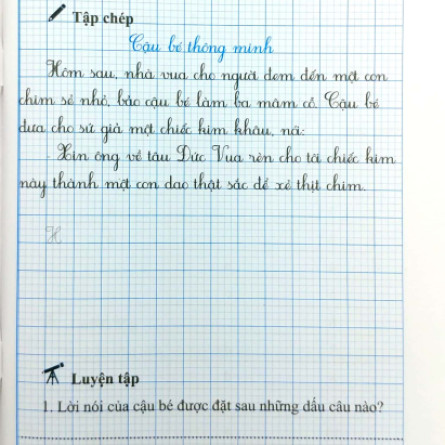 Tập chép
Cậu bé thông minh
Hôm sau, nhà vua cho người đem đến một con
chim sẻ nhỏ, bảo cậu bé làm ba mâm cỗ. Cậu bé
đưa cho sứ giả một chiếc kim khâu, nói:
- Xin ông về tâu Đức Vua rèn cho tôi chiếc kim
này thành một con dao thật sắc để xẻ thịt chim.
H
Luyện tập
1. Lời nói của cậu bé được đặt sau những dấu câu nào?